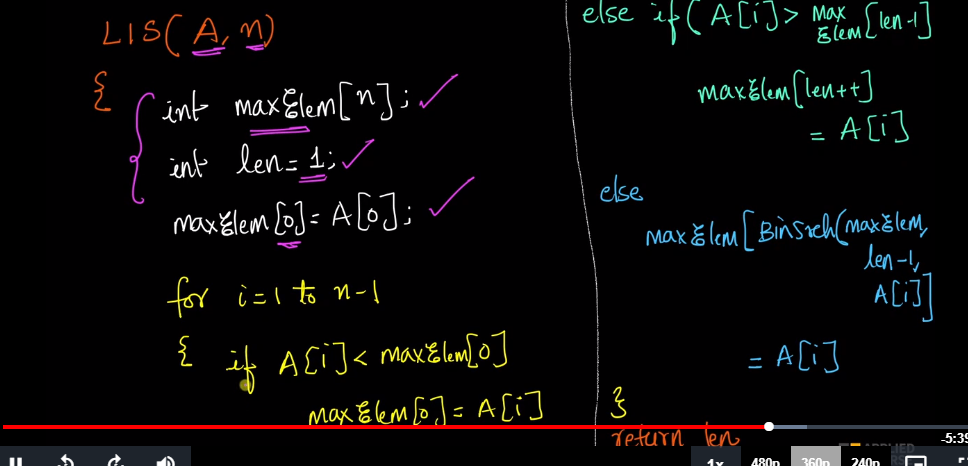 LIS( A, n)
{
int maxElem[n];
int len = 1;
maxElem[0] = A[0];
for i=1 to n-1
{ if A[i] < maxElem[0]
maxElem[0] = A[i]
else if( A[i] > Max
Elem[len-1]
maxElem[len++]
= A[i]
else
maxElem[BinSrch(maxElem,
len-1,
A[i]]
= A[i]
}
return len
-5:39
1x 480p 360p 240p